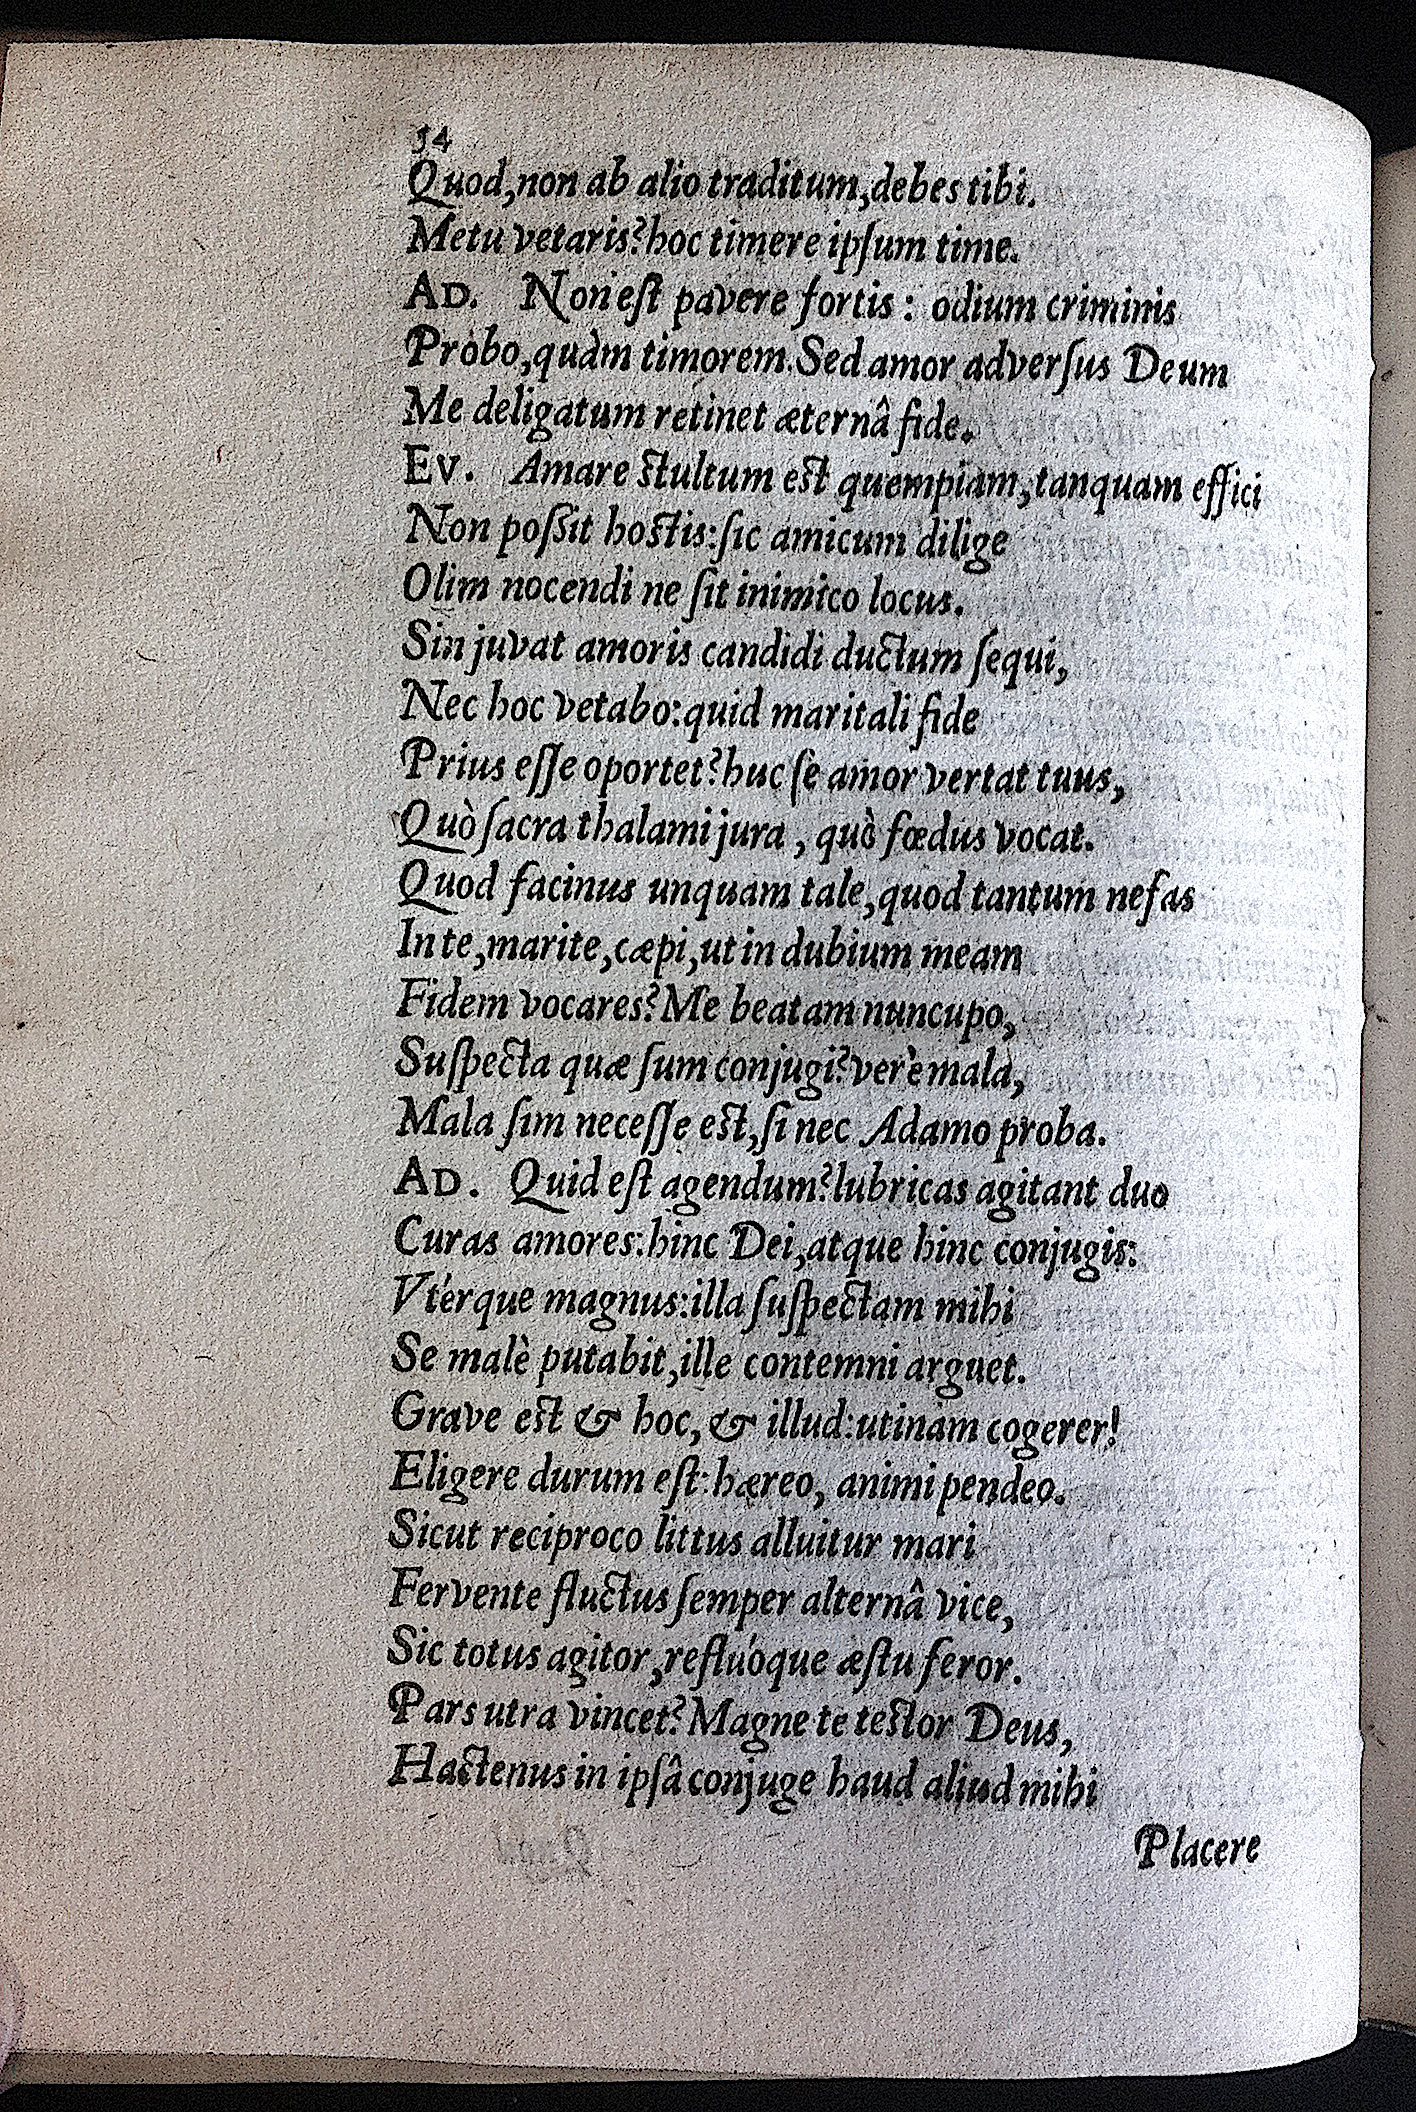 54
Quod, non ab alio traditum, debes tibi.
Metu vetaris? hoc timere ipſum time.
AD. Non eſt pavere fortis: odium criminis
Probo, quàm timorem. Sed amor adverſus Deum
Me deligatum retinet æternâ fide.
EV. Amare ſtultum eſt quempiam, tanquam effici
Non poſſit hoſtis: ſic amicum dilige
Olim nocendi ne ſit inimico locus.
Sin juvat amoris candidi ductum ſequi,
Nec hoc vetabo: quid maritali fide
Prius eſſe oportet? huc ſe amor vertat tuus,
Quò ſacra thalami jura, quò fœdus vocat.
Quod facinus unquam tale, quod tantum nefas
In te, marite, cæpi, ut in dubium meam
Fidem vocares? Me beatam nuncupo,
Suſpecta quæ ſum conjugi? verè mala,
Mala ſim neceſſe eſt, ſi nec Adamo proba.
AD. Quid eſt agendum? lubricas agitant duo
Curas amores: hinc Dei, atque hinc conjugis:
Vtérque magnus: illa ſuſpectam mihi
Se malè putabit, ille contemni arguet.
Grave eſt & hoc, & illud: utinam cogerer!
Eligere durum eſt: hæreo, animi pendeo.
Sicut reciproco littus alluitur mari
Fervente fluctus ſemper alternâ vice,
Sic totus agitor, refluóque æſtu feror.
Pars utra vincet? Magne te teſtor Deus,
Hactenus in ipſâ conjuge haud aliud mihi
Placere